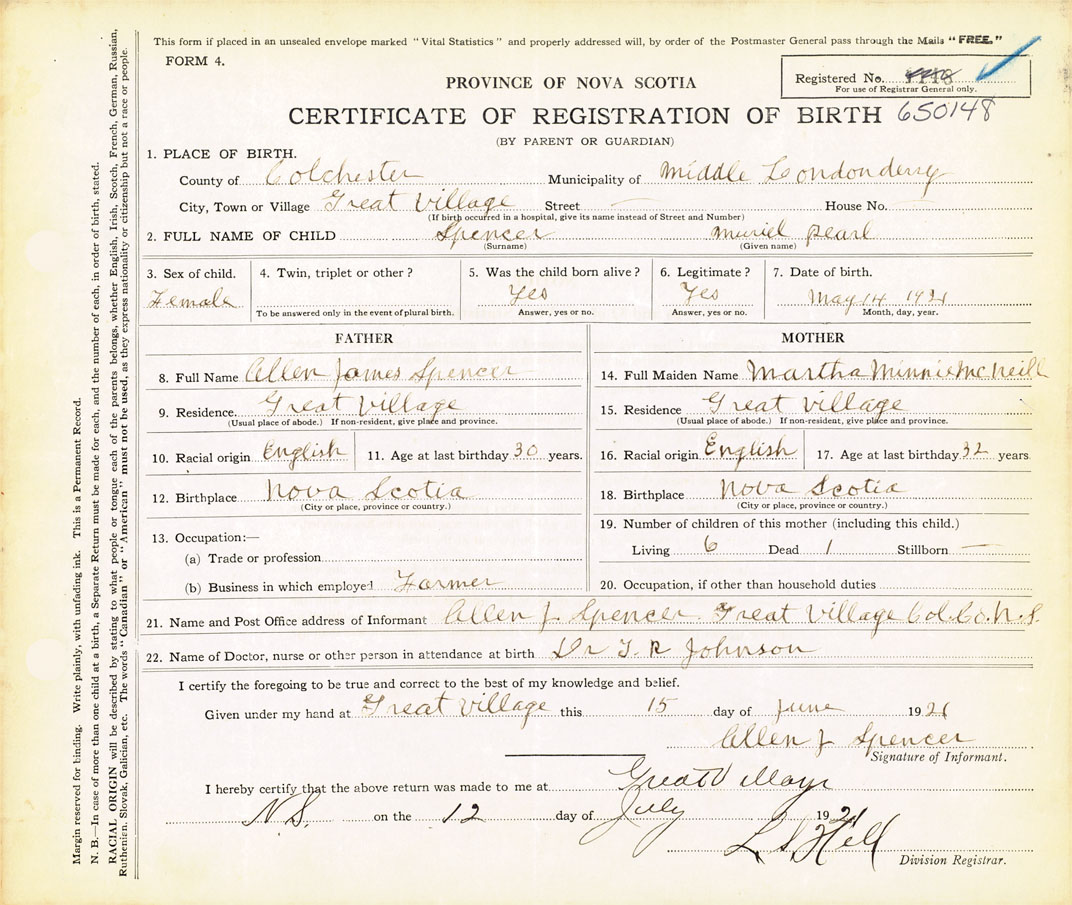 This form if placed in an unsealed envelope marked "Vital Statistics" and properly addressed will, by order of the Postmaster General pass through the Mails "FREE."
FORM 4.
Registered No.
For use of Registrar General only.
PROVINCE OF NOVA SCOTIA
CERTIFICATE OF REGISTRATION OF BIRTH 650148
(BY PARENT OR GUARDIAN)
1. PLACE OF BIRTH.
County of Colchester Municipality of Middle Londonderry
City, Town or Village Great Village Street — House No. —
(If birth occurred in a hospital, give its name instead of Street and Number)
2. FULL NAME OF CHILD Spencer Muriel Pearl
(Surname) (Given name)
3. Sex of child. 4. Twin, triplet or other? 5. Was the child born alive? 6. Legitimate? 7. Date of birth.
Female Yes Yes May 14 1921
To be answered only in the event of plural birth. Answer, yes or no. Answer, yes or no. Month, day, year.
FATHER MOTHER
8. Full Name Allen James Spencer 14. Full Maiden Name Martha Minnie McNeill
9. Residence. Great Village 15. Residence Great Village
(Usual place of abode.) If non-resident, give place and province. (Usual place of abode.) If non-resident, give place and province.
10. Racial origin English 11. Age at last birthday 30 years. 16. Racial origin English 17. Age at last birthday 32 years
12. Birthplace Nova Scotia 18. Birthplace Nova Scotia
(City or place, province or country.) (City or place, province or country.)
13. Occupation:— 19. Number of children of this mother (including this child.)
(a) Trade or profession Living 6 Dead 1 Stillborn —
(b) Business in which employed Farmer 20. Occupation, if other than household duties
21. Name and Post Office address of Informant Allen J Spencer Great Village Col. Co. N.S.
22. Name of Doctor, nurse or other person in attendance at birth Dr T. R Johnson
I certify the foregoing to be true and correct to the best of my knowledge and belief.
Given under my hand at Great Village this 15 day of June 1921
Allen J Spencer
Signature of Informant.
I hereby certify that the above return was made to me at Great Village
N.S. on the 12 day of July 1921
L. S. Hill
Division Registrar.
Margin reserved for binding. Write plainly, with unfading ink. This is a Permanent Record.
N. B.—In case of more than one child at a birth, a Separate Return must be made for each, and the number of each, in order of birth, stated.
RACIAL ORIGIN will be described by stating to what people or tongue each of the parents belongs, whether English, Irish, Scotch, French, German, Russian,
Ruthenian, Slovak, Galician, etc. The words "Canadian" or "American" must not be used, as they express nationality or citizenship but not a race or people.